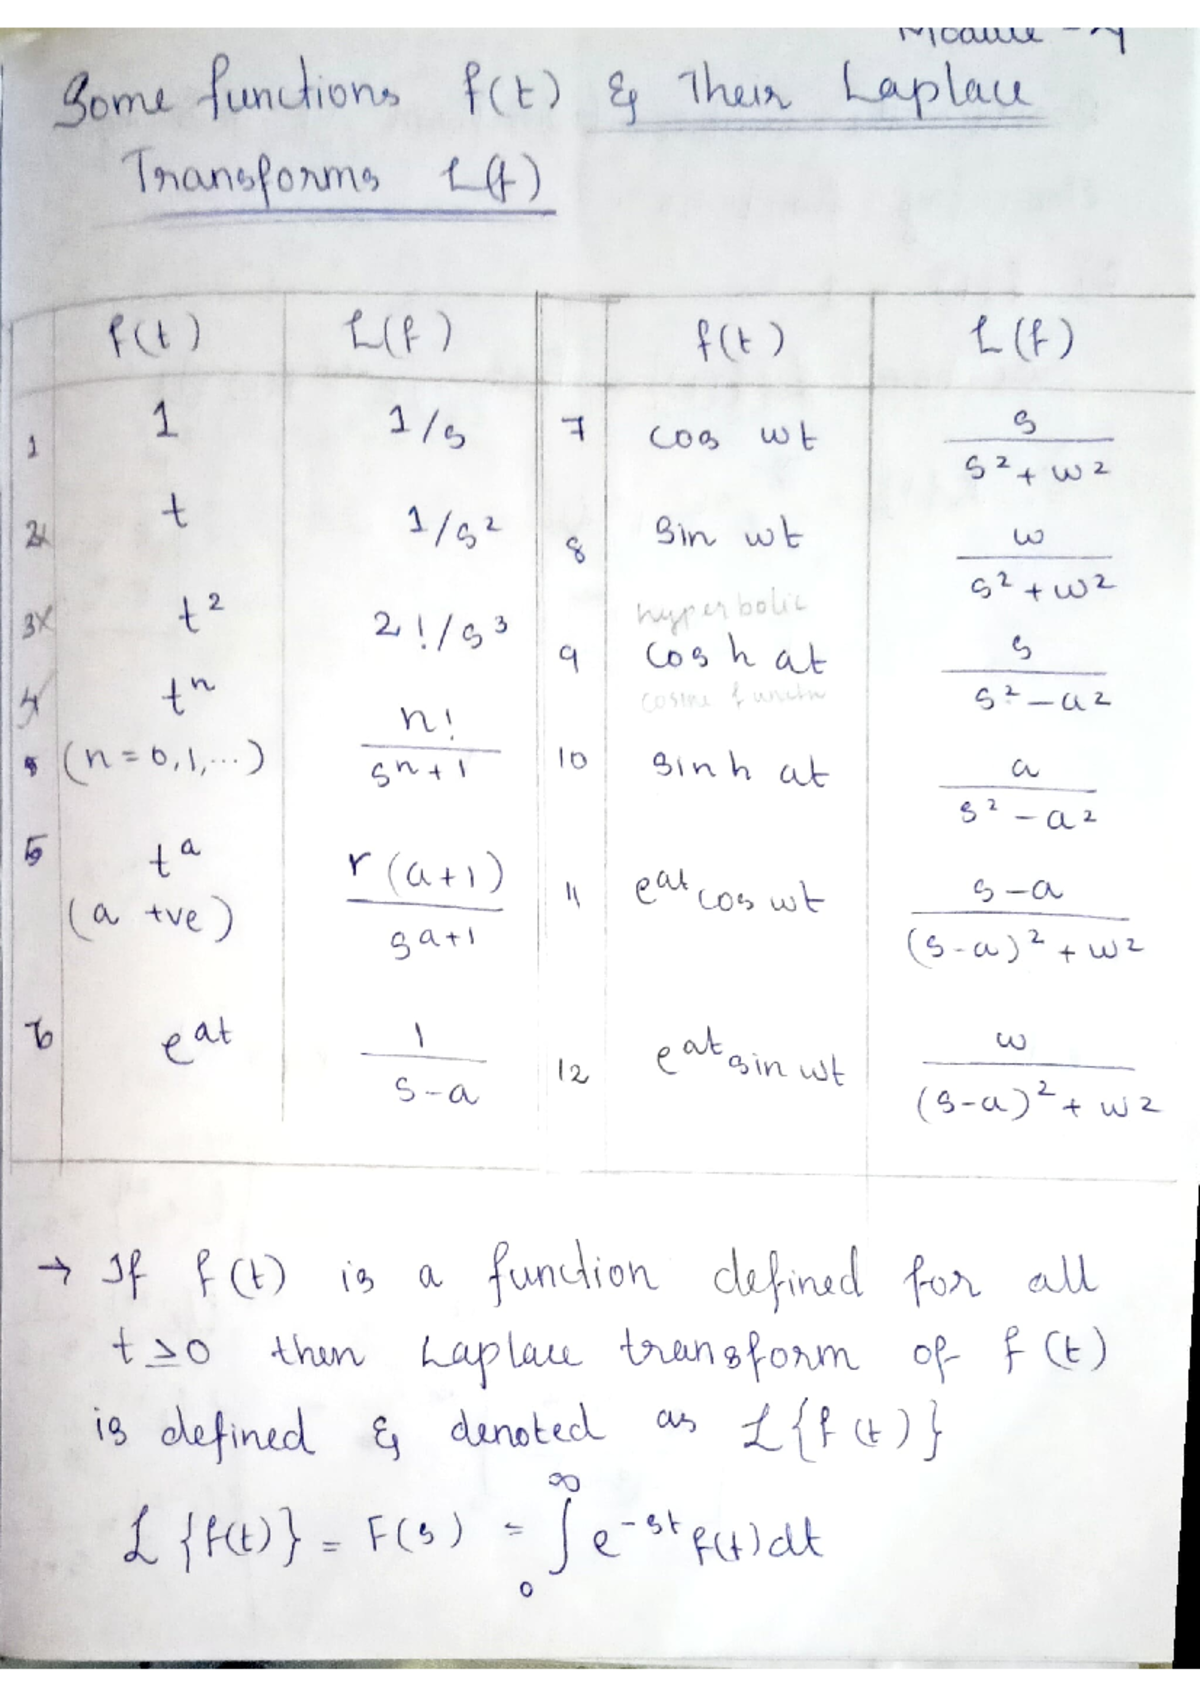 Module - 4
Some functions f(t) & Their Laplace
Transforms L(f)
f(t) L(f) f(t) L(f)
1 1 1/s 7 cos wt s / s² + w²
2 t 1/s² 8 sin wt w / s² + w²
3 t² 2!/s³ hyperbolic
9 cos h at s / s² - a²
cosine functn
4 tⁿ (n = 0,1,...) n! / sⁿ⁺¹ 10 sinh at a / s² - a²
5 tᵃ (a +ve) r(a+1) / sᵃ⁺¹ 11 eᵃᵗ cos wt s-a / (s-a)² + w²
6 eᵃᵗ 1 / s-a 12 eᵃᵗ sin wt w / (s-a)² + w²
→ If f(t) is a function defined for all
t ≥ 0 then Laplace transform of f(t)
is defined & denoted as L{f(t)}
L{f(t)} = F(s) = ∫₀^∞ e^-st f(t)dt